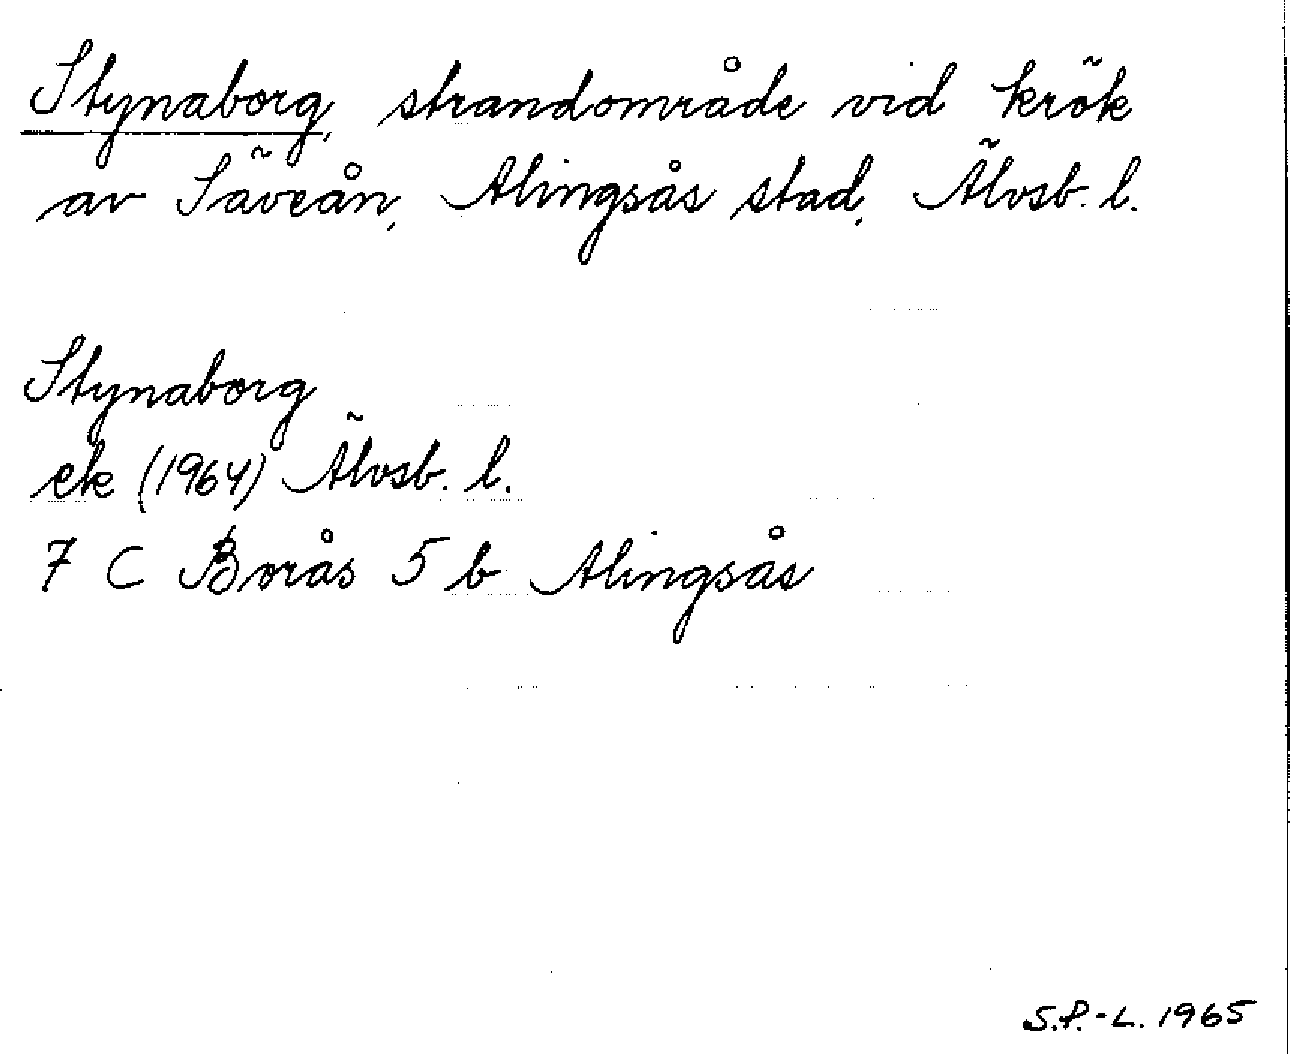 Stynaborg, strandområde vid krök
av Säveån, Alingsås stad, Älvsb. l.
Stynaborg
ek (1964) Älvsb. l.
7 C Borås 5 b Alingsås
S.P.-L. 1965